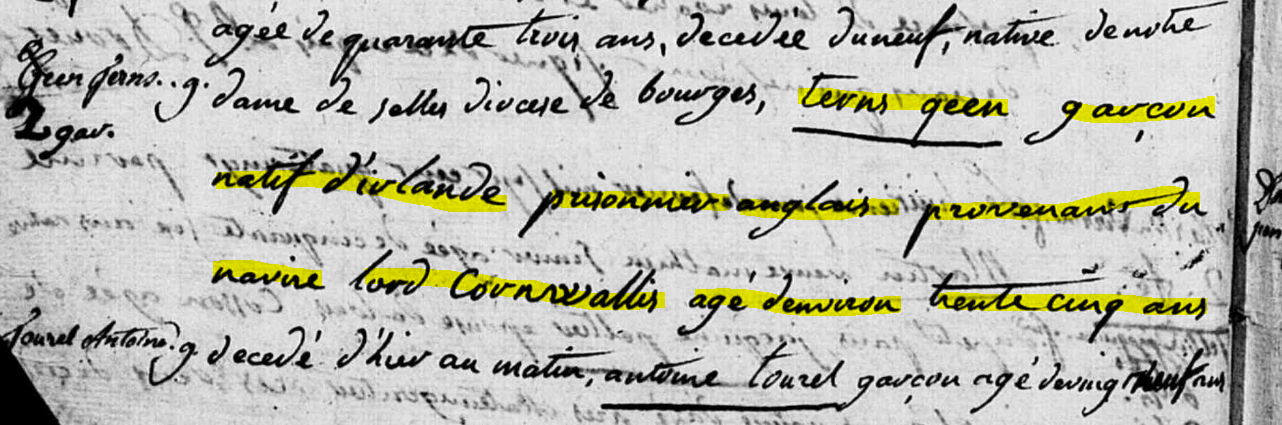 agée de quarante trois ans, decedée du neuf, native de notre
Geen Terns.. g. dame de selles diocese de bourges, terns geen garçon
2
gar.
natif d'irlande prisonnier anglais provenant du
navire lord Cornwallis agé denviron trente cinq ans
Tourel Antoine. g. decedé d'hier au matin, antoine tourel garçon agé de vingt neuf ans